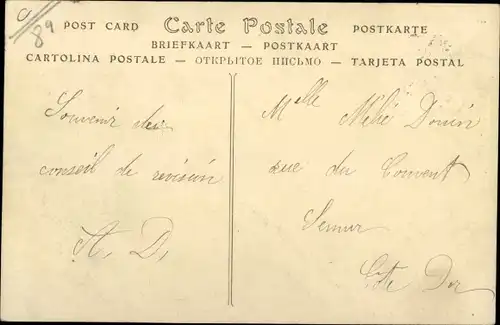 89
POST CARD Carte Postale POSTKARTE
BRIEFKAART — POSTKAART
CARTOLINA POSTALE — ОТКРЫТОЕ ПИСЬМО — TARJETA POSTAL
Souvenir du
conseil de revision
A. D.
Melle
rue du Couvent
Semur
Côte Dor